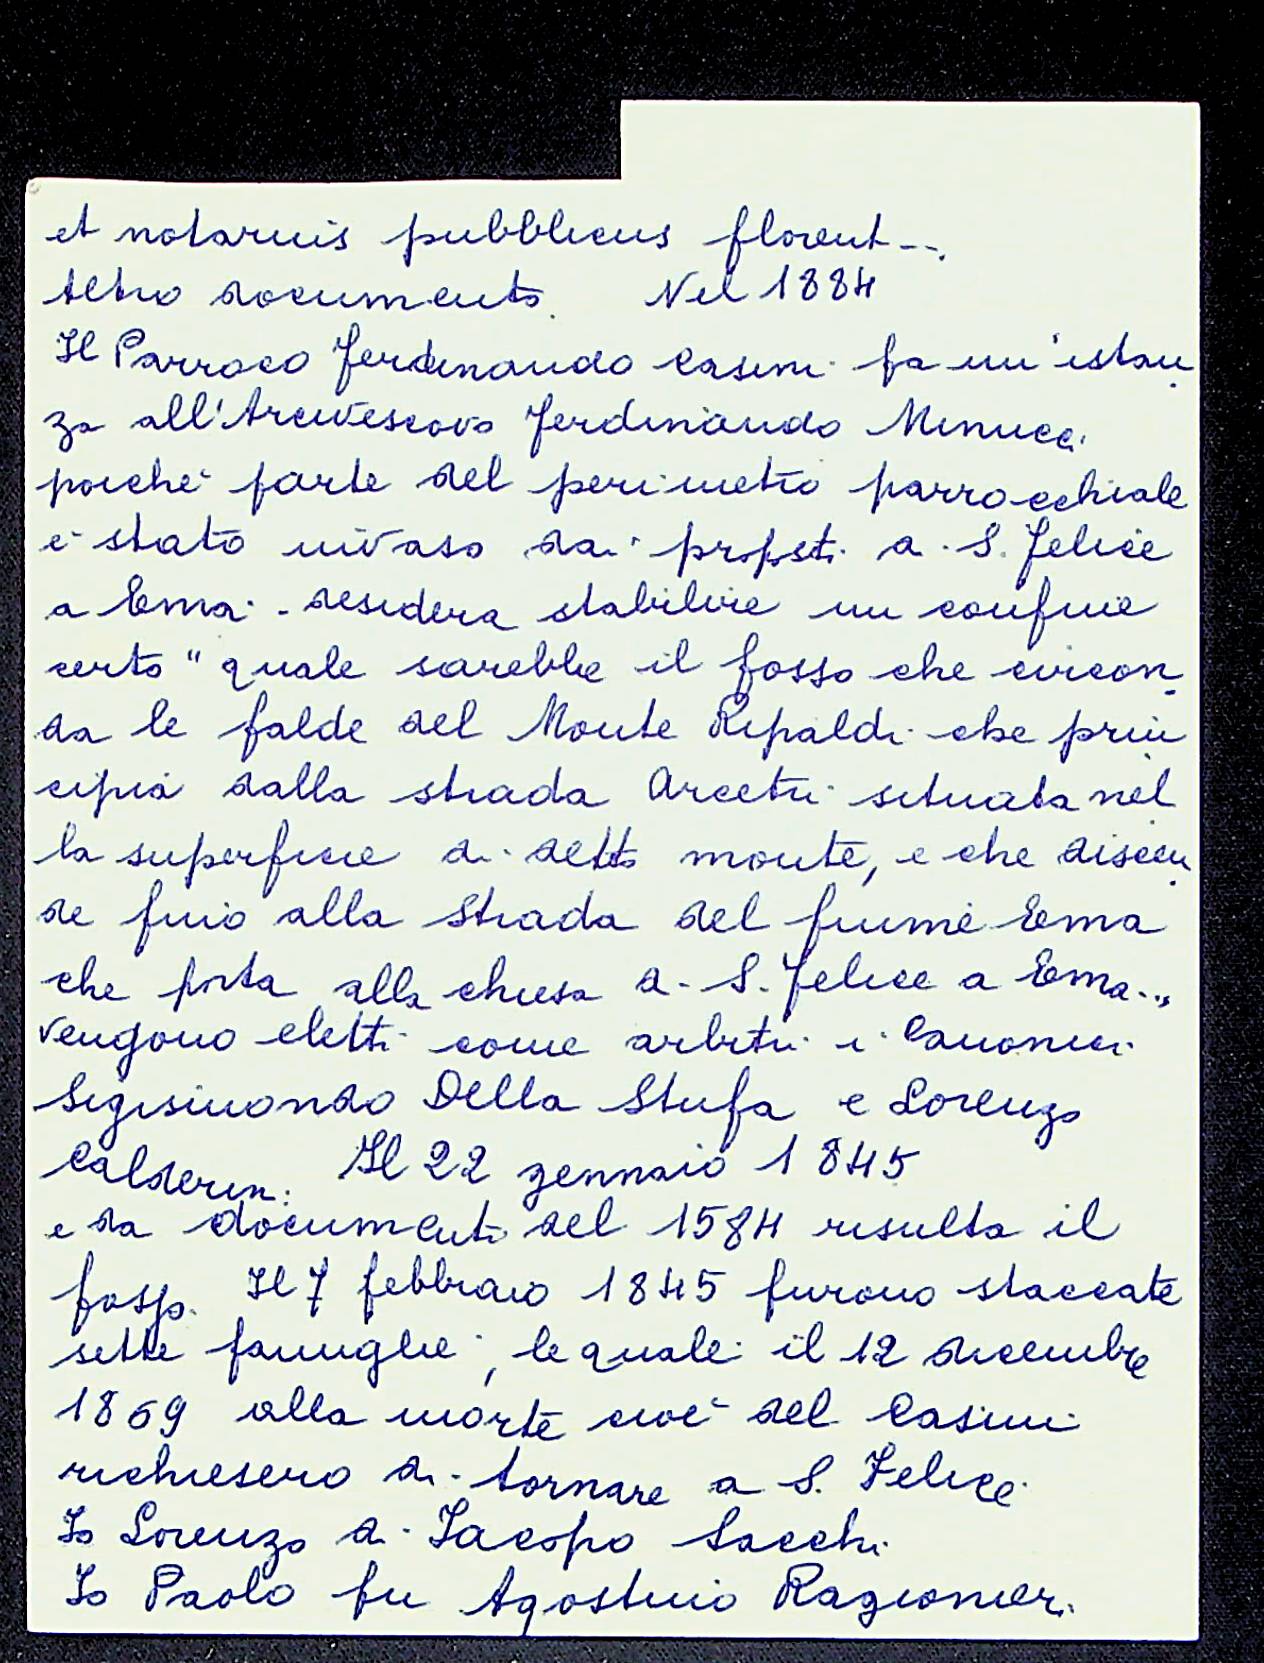 et notaruis pubblicus florent--.
Altro documento. Nel 1884
Il Parroco Ferdinando Casini fa un'istan
za all'Arcivescovo Ferdinando Minucci
poiché parte del perimetro parrocchiale
è stato invaso dai proposti di S. Felice
a Ema - desidera stabilire un confine
certo "quale sarebbe il fosso che circon
da le falde del Monte Ripaldi che prin
cipia dalla strada Arcetri situata nel
la superficie di detto monte, e che discen
de fino alla strada del fiume Ema
che porta alla chiesa di S. Felice a Ema..,
vengono eletti come arbitri i Canonici
Sigismondo Della Stufa e Lorenzo
Calderini. Il 22 gennaio 1845
e da documenti del 1584 risulta il
fosso. Il 7 febbraio 1845 furono staccate
sette famiglie, le quali il 12 dicembre
1869 alla morte cioè del Casini
richiesero di tornare a S. Felice.
Io Lorenzo di Jacopo Sacchi
Io Paolo fu Agostino Ragionieri